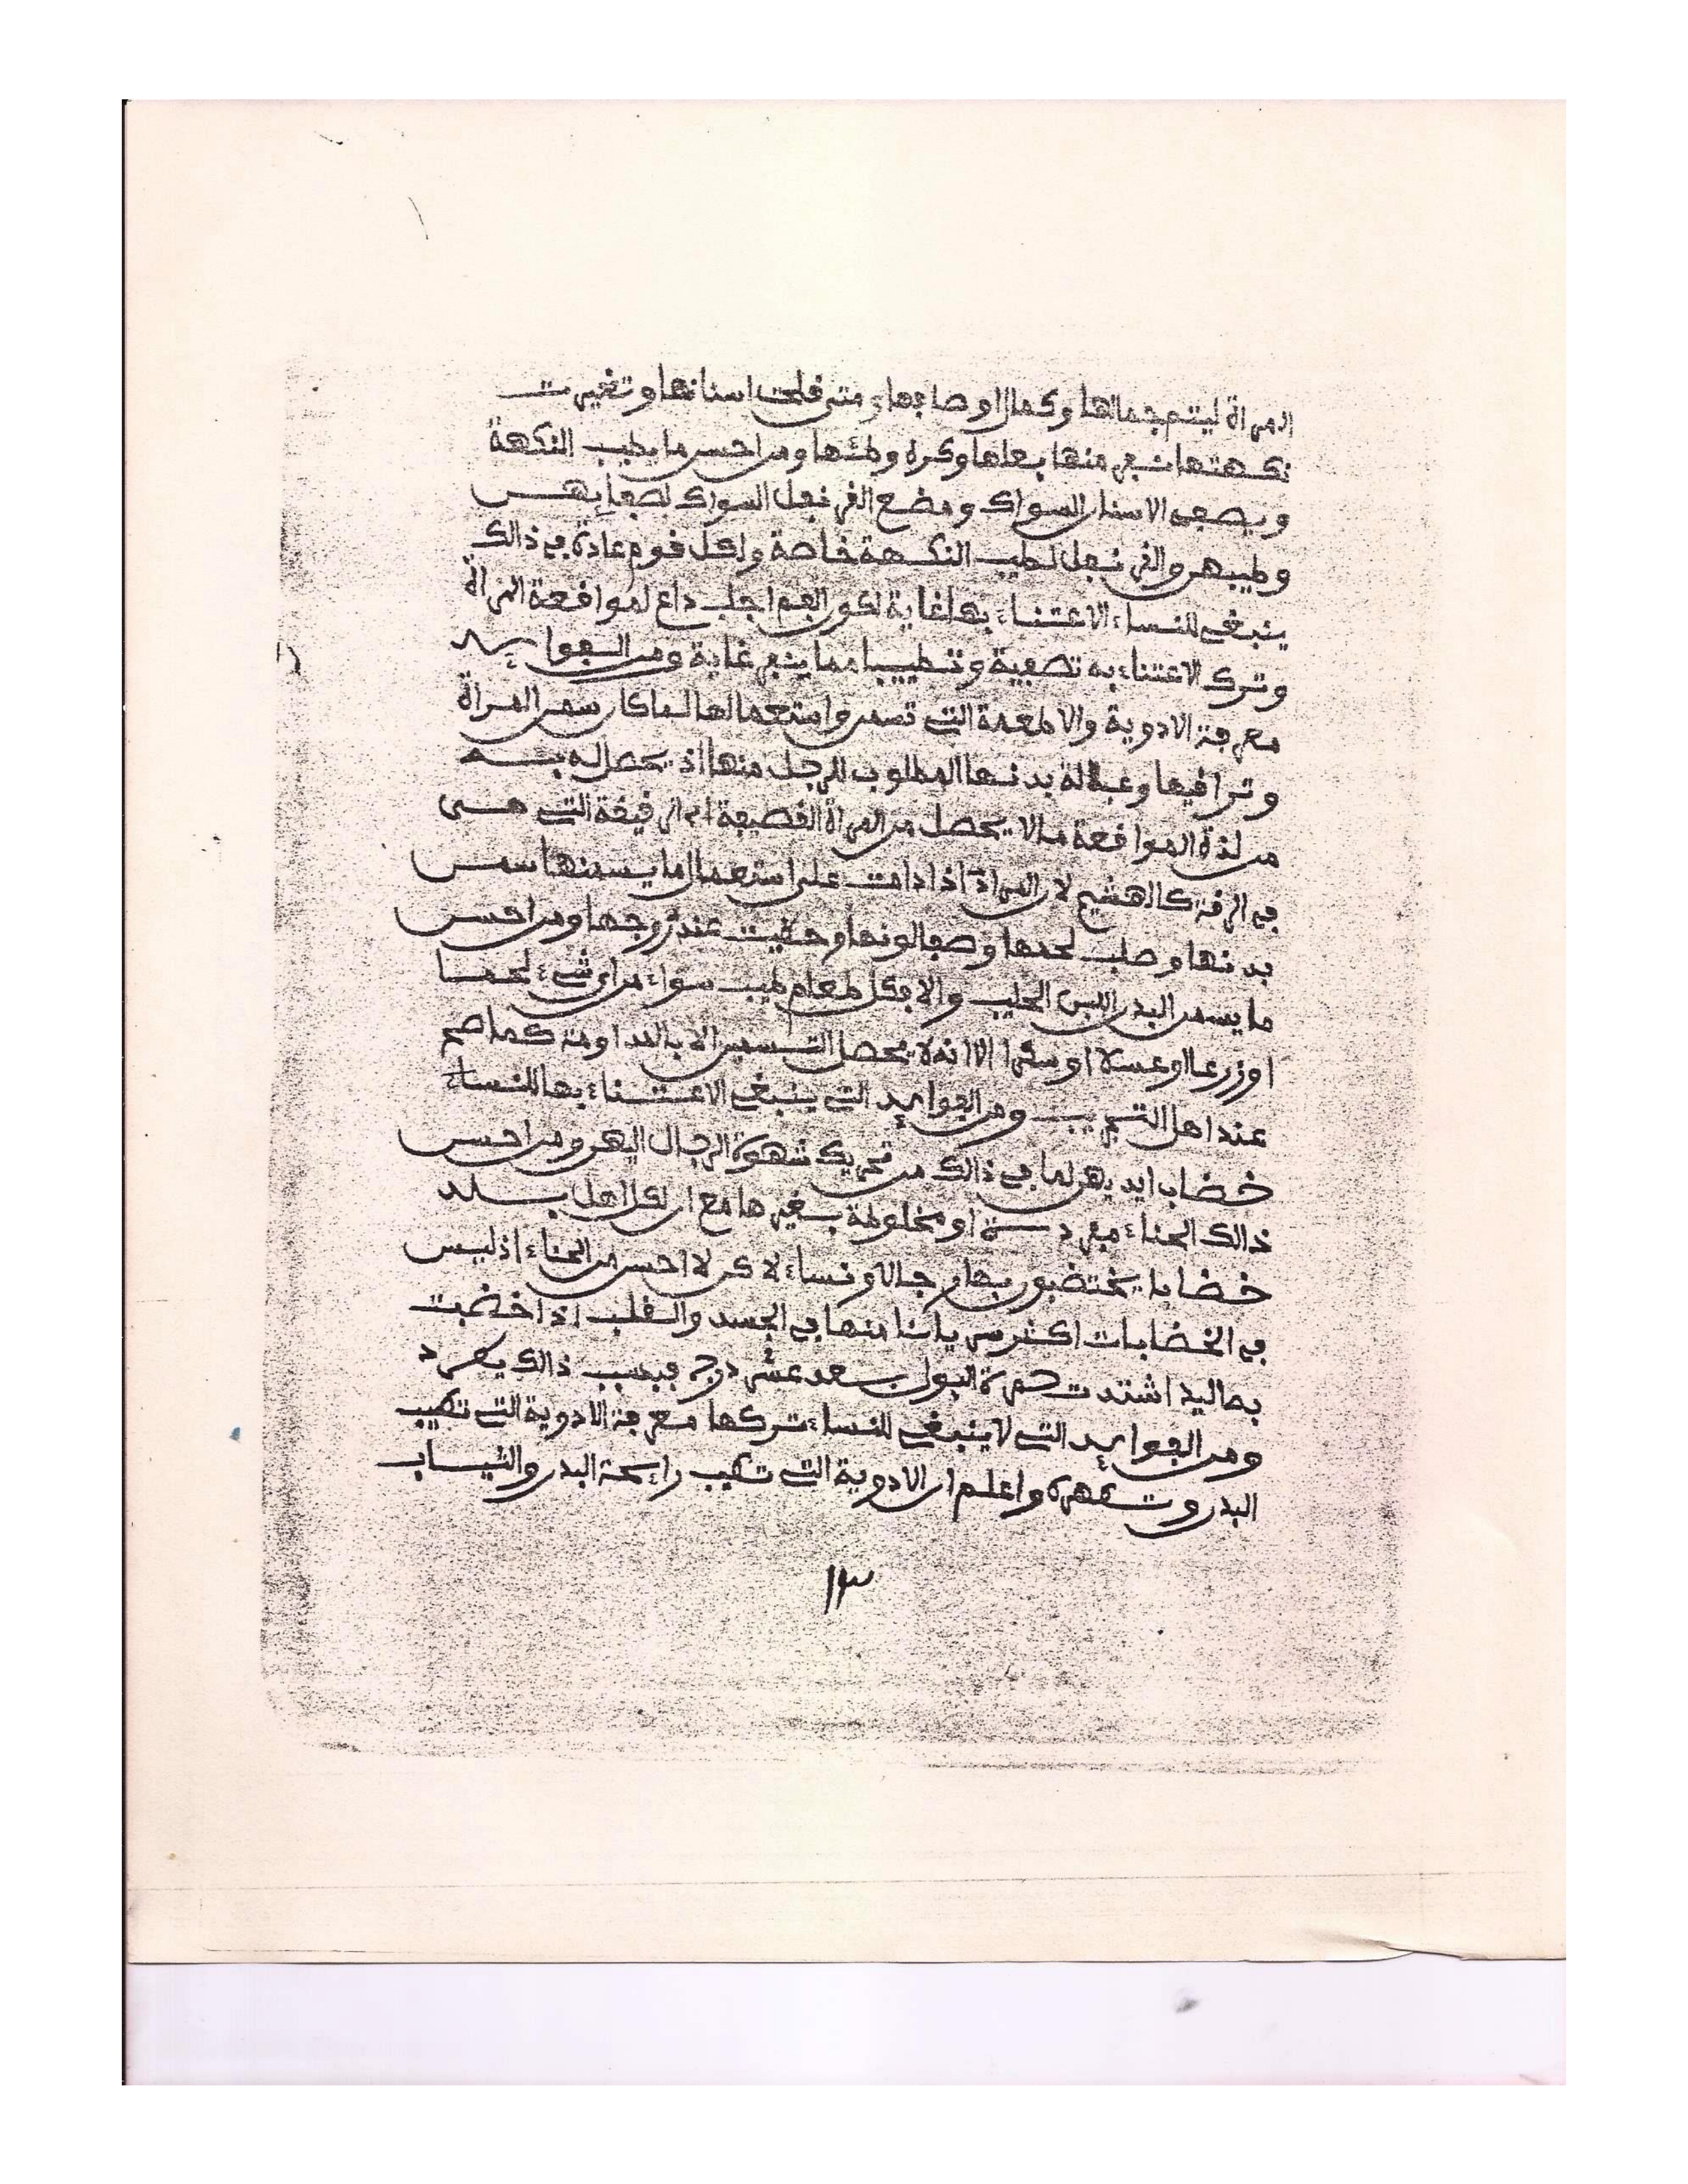 المرأة ليتم جمالها وكمال اوصافها ومتى قلحت اسنانها وتغيرت
نكهتها نفر منها بعلها وكره وطئها ومن احسن ما يطيب النكهة
ويصفى الاسنان السواك ومضغ القرنفل السواك لصفايهن
وطيبهن والقرنفل لطيب النكهة خاصة ولكل قوم عادة في ذالك
ينبغي للنساء الاعتناء بها غاية لكون الفم اجلب داع لمواقعة المرأة
وترك الاعتناء به تصفية وتطييبا مما ينفر غاية ومن الفوايد
معرفة الادوية والاطعمة التي تسمن واستعمالها لما كان سمن المرأة
وترافيها وعبالة بدنها المطلوب للرجل منها اذ يحصل له به
من لذة المواقعة ما لا يحصل من المرأة القصيفة ام الرقيقة التي هي
في الرقة كالهشيم لان المرأة اذا دامت على استعمال ما يسمنها سمن
بدنها وصلب لحمها وصفا لونها وحظيت عند زوجها ومن احسن
ما يسمن البدن اللبن الحليب والا فكل طعام طيب سواء من اي شيء لحما
او زرعا او عسلا او سكرا الا انه لا يحصل التسمين الا بالمداومة كما صح
عند اهل التجريب ومن الفوايد التي ينبغي الاعتناء بها للنساء
خضاب ايديهن لما في ذالك من تحريك شهوة الرجال اليهن ومن احسن
ذالك الحناء مفردة او مخلوطة بغيرها مع ان لكل اهل بلد
خضابا يختضبون بها رجالا ونساء لاكن لا احسن من الحناء اذ ليس
في الخضابات اكثر سريانا منها في الجسد والقلب اذا خضبت
بها اليد اشتدت حمرة البول بعد عشر درج فبسبب ذالك يطرد
ومن الفوايد التي لا ينبغي للنساء تركها معرفة الادوية التي تطيب
البدن وتطهره واعلم ان الادوية التي تطيب رايحة البدن والثياب
١٣